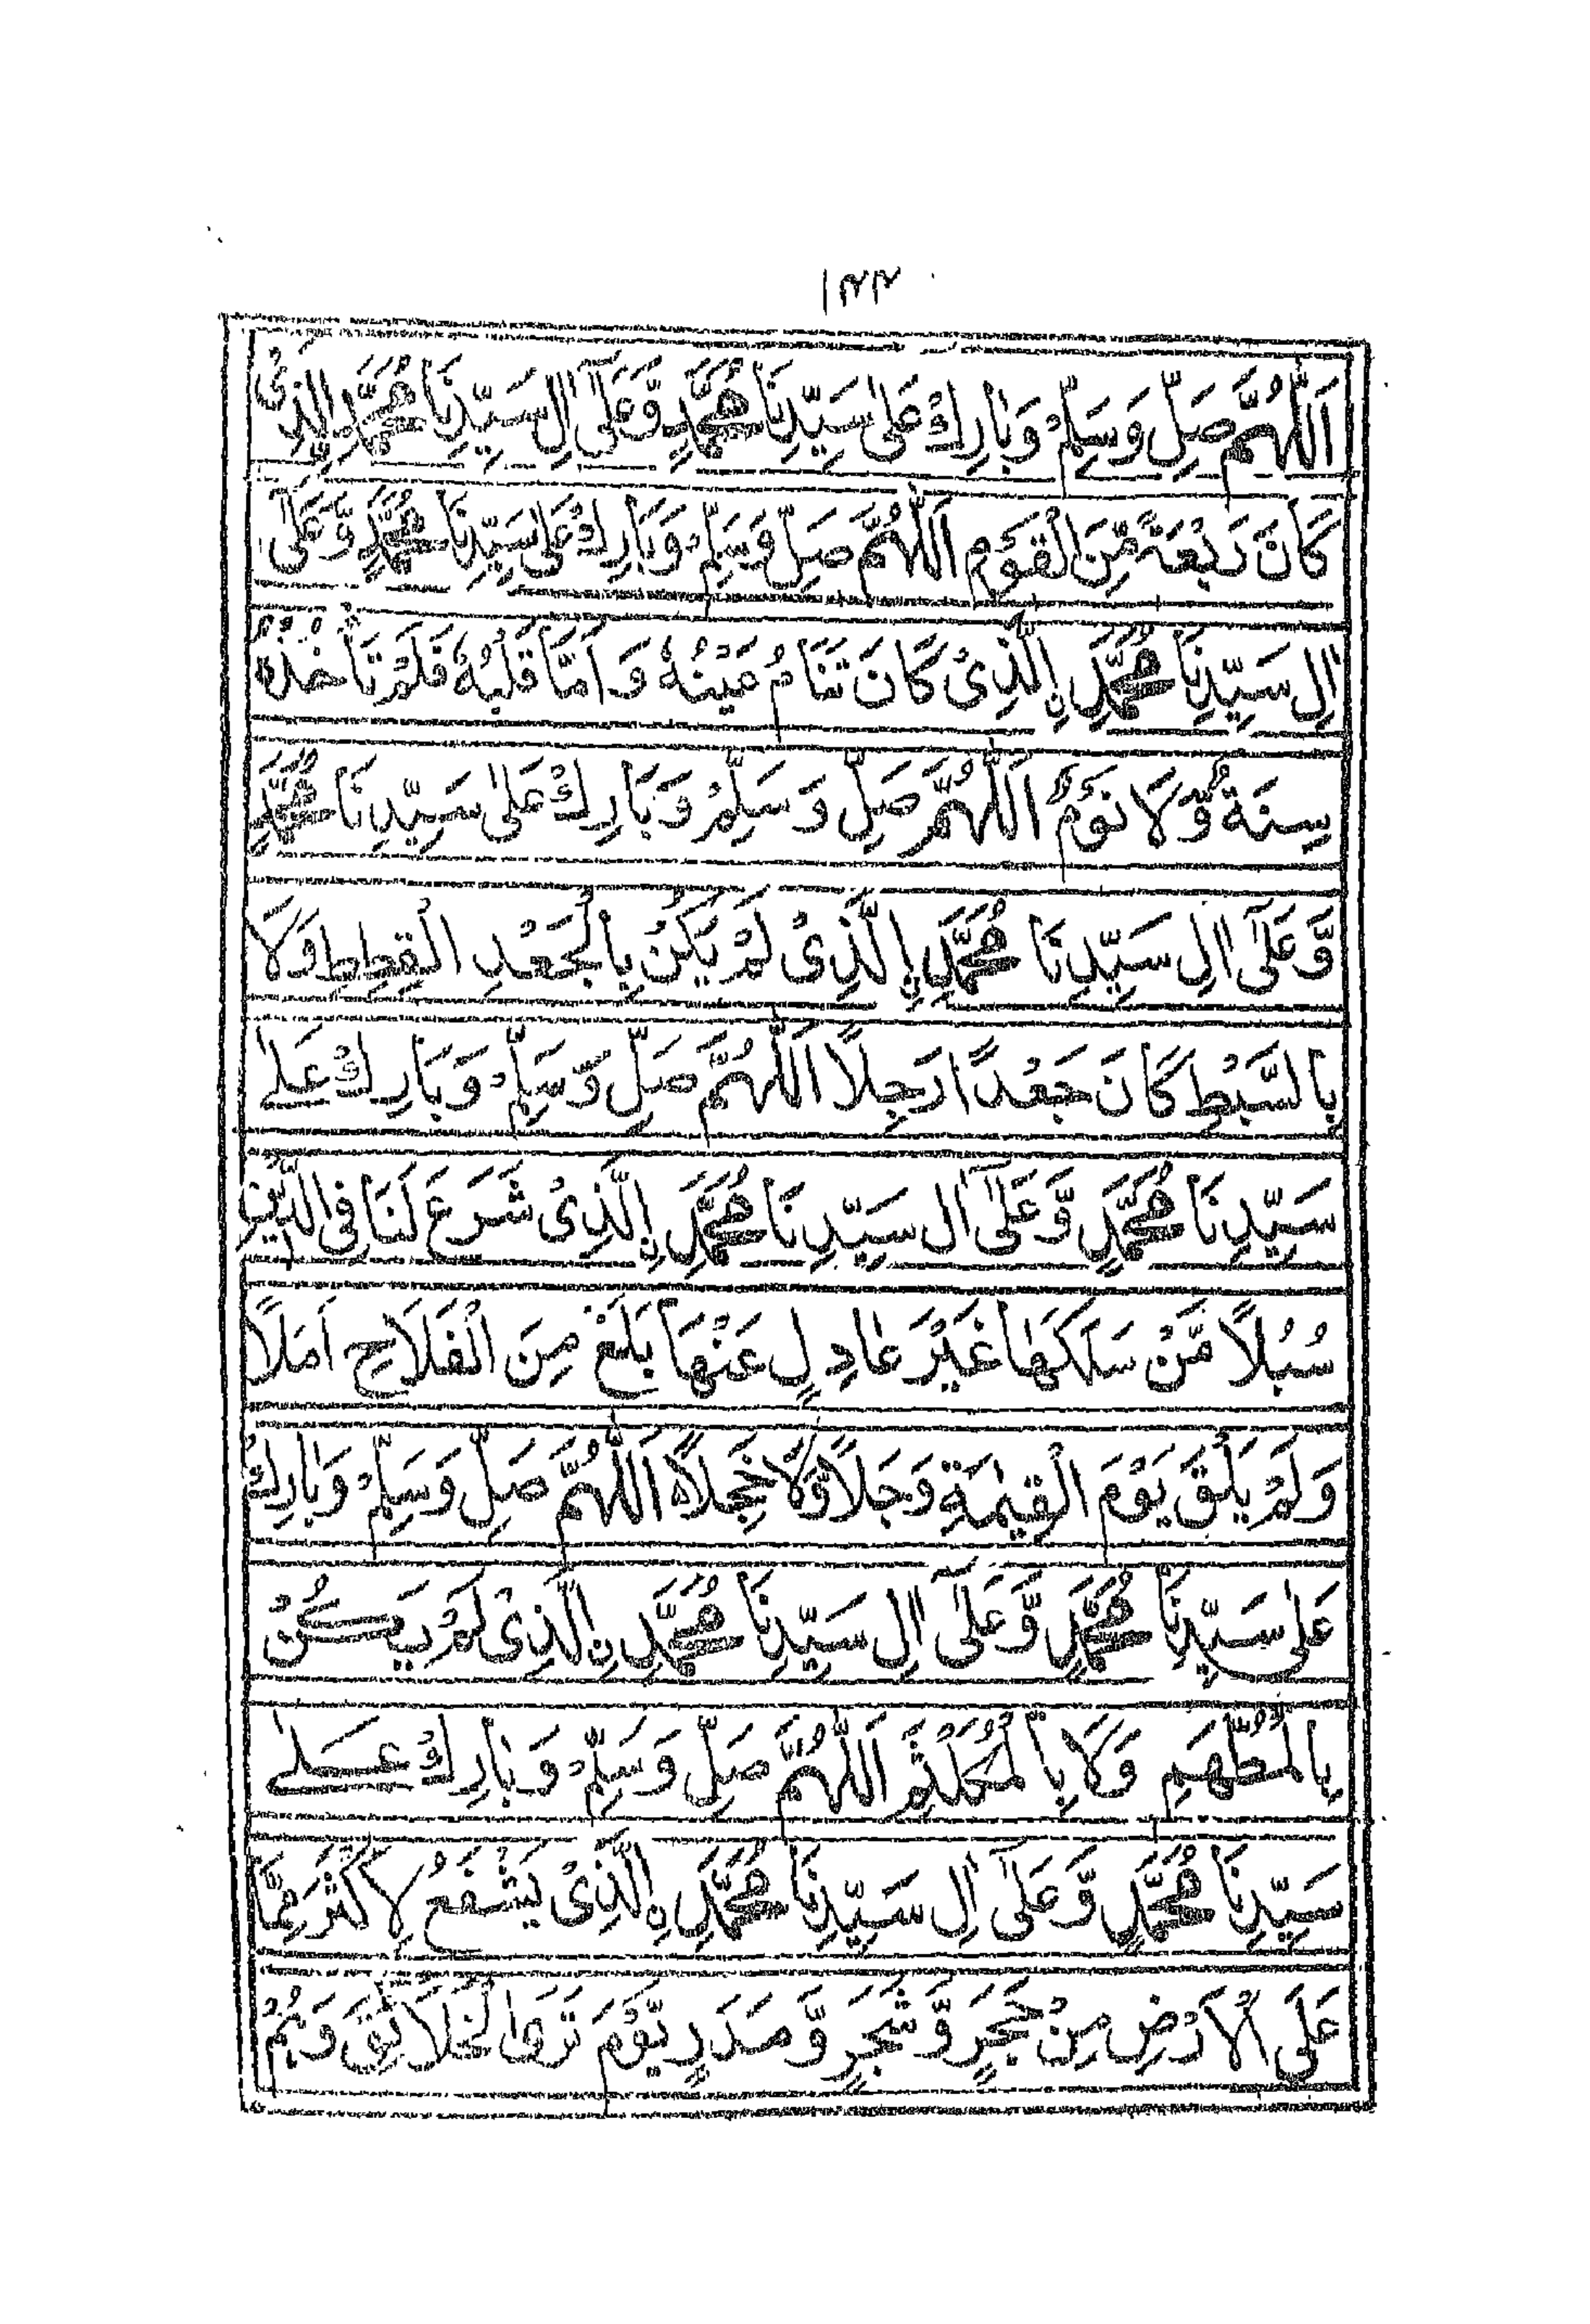 ١٢٢
اَللّٰهُمَّ صَلِّ وَسَلِّمْ وَبَارِكْ عَلٰى سَيِّدِنَا مُحَمَّدٍ وَّعَلٰٓى اٰلِ سَيِّدِنَا مُحَمَّدِ ِۨالَّذِىْ
كَانَ رَبْعَةً مِّنَ الْقَوْمِ اَللّٰهُمَّ صَلِّ وَسَلِّمْ وَبَارِكْ عَلٰى سَيِّدِنَا مُحَمَّدٍ وَّعَلٰٓى
اٰلِ سَيِّدِنَا مُحَمَّدِ ِۨالَّذِىْ كَانَ تَنَامُ عَيْنُهٗ وَاَمَّا قَلْبُهٗ فَلَمْ تَأْخُذْهُ
سِنَةٌ وَّلَا نَوْمٌ اَللّٰهُمَّ صَلِّ وَسَلِّمْ وَبَارِكْ عَلٰى سَيِّدِنَا مُحَمَّدٍ
وَّعَلٰٓى اٰلِ سَيِّدِنَا مُحَمَّدِ ِۨالَّذِىْ لَمْ يَكُنْ بِالْجَعْدِ الْقِطِطِ وَلَا
بِالسَّبْطِ كَانَ جَعْدًا رَجِلًا اَللّٰهُمَّ صَلِّ وَسَلِّمْ وَبَارِكْ عَلٰى
سَيِّدِنَا مُحَمَّدٍ وَّعَلٰٓى اٰلِ سَيِّدِنَا مُحَمَّدِ ِۨالَّذِىْ شَرَعَ لَنَا فِى الدِّيْنِ
سُبُلًا مَّنْ سَلَكَهَا غَيْرَ عَادِلٍ عَنْهَا بَلَغَ مِنَ الْفَلَاحِ اَمَلًا
وَلَمْ يَلْقَ يَوْمَ الْقِيٰمَةِ وَجَلًا وَّلَا خَجِلًا ه اَللّٰهُمَّ صَلِّ وَسَلِّمْ وَبَارِكْ
عَلٰى سَيِّدِنَا مُحَمَّدٍ وَّعَلٰٓى اٰلِ سَيِّدِنَا مُحَمَّدِ ِۨالَّذِىْ لَمْ يَكُنْ
بِالْمُطَهَّمِ وَلَا بِالْمُكَلْثَمِ اَللّٰهُمَّ صَلِّ وَسَلِّمْ وَبَارِكْ عَلٰى
سَيِّدِنَا مُحَمَّدٍ وَّعَلٰٓى اٰلِ سَيِّدِنَا مُحَمَّدِ ِۨالَّذِىْ يَشْفَعُ لِاَكْثَرَ مِمَّا
عَلَى الْاَرْضِ مِنْ حَجَرٍ وَّشَجَرٍ وَّمَدَرٍ يَّوْمَ تَرَى الْخَلَائِقَ وَهُمْ